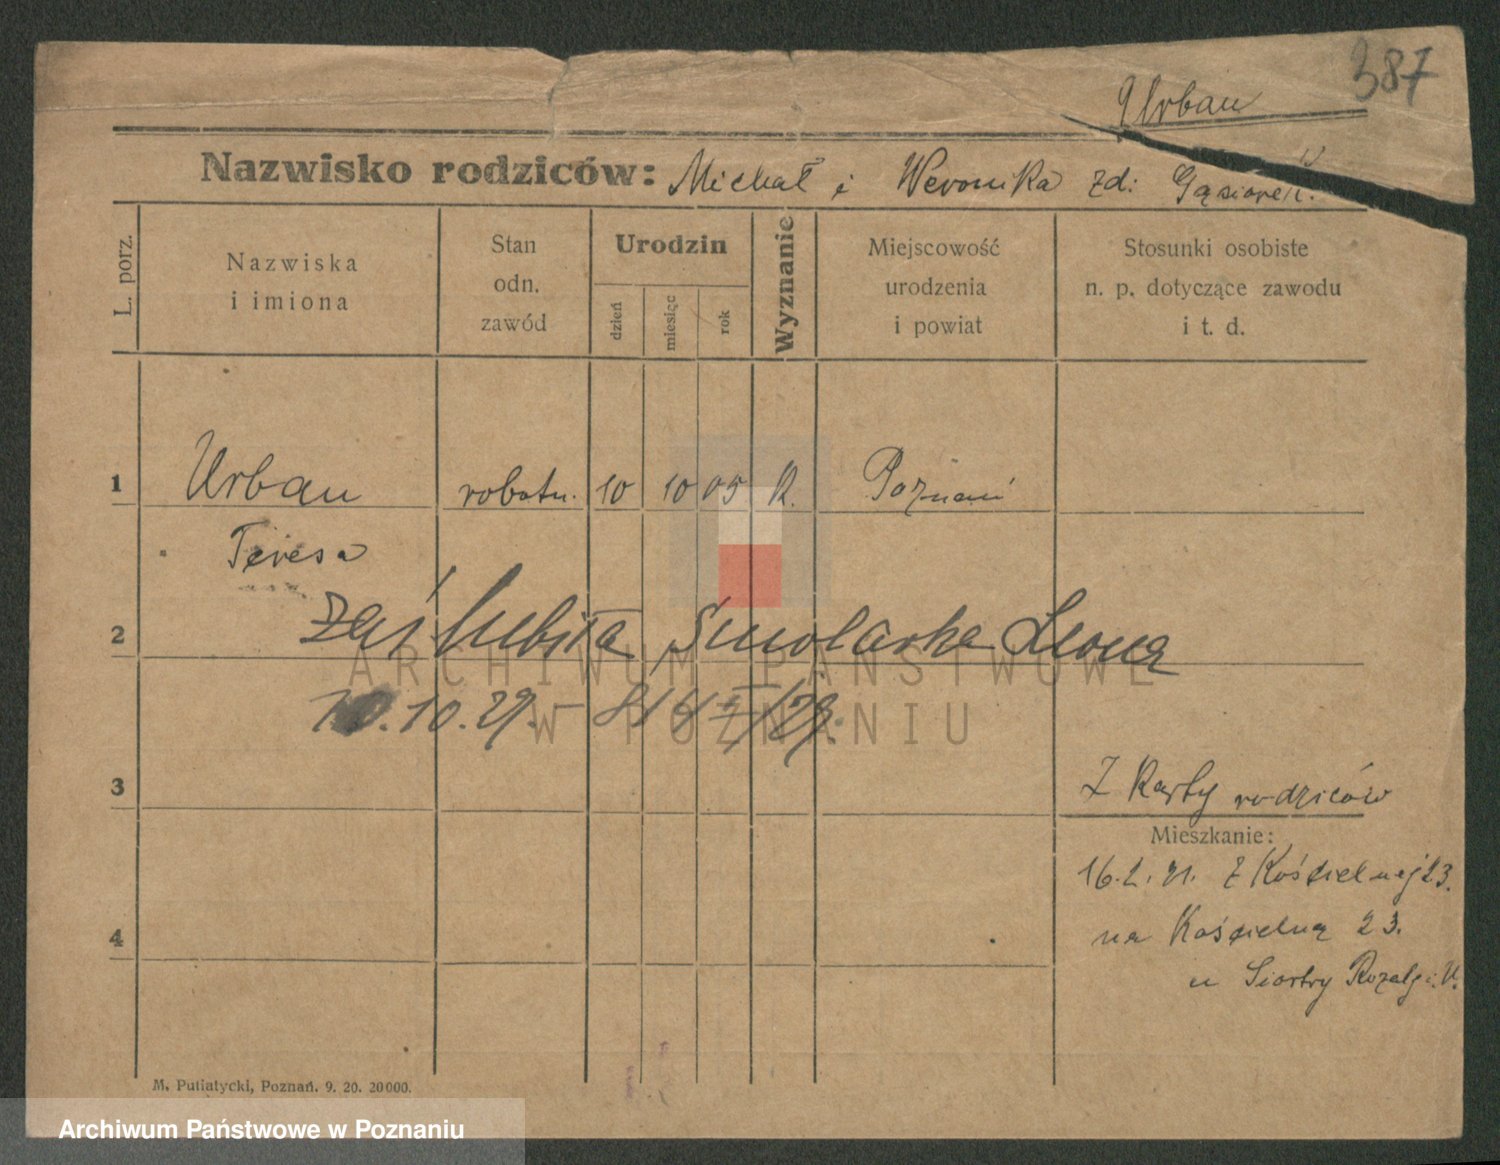 387
Urban
Nazwisko rodziców: Michał i Weronika zd: Gąsiorek.
L. porz.
Nazwiska
i imiona
Stan
odn.
zawód
Urodzin
dzień
miesiąc
rok
Wyznanie
Miejscowość
urodzenia
i powiat
Stosunki osobiste
n. p. dotyczące zawodu
i t. d.
1 Urban robotn. 10 10 05 R. Poznań
Teresa
2 zaślubiła Smolarka Leona
10.29.
3 Z Karty rodziców
Mieszkanie:
16.2.21. Z Kościelnej 23.
na Kościelną 23.
4
u Siostry Rozalji U.
M. Putiatycki, Poznań. 9. 20. 20000.
ARCHIWUM PAŃSTWOWE
W POZNANIU
Archiwum Państwowe w Poznaniu